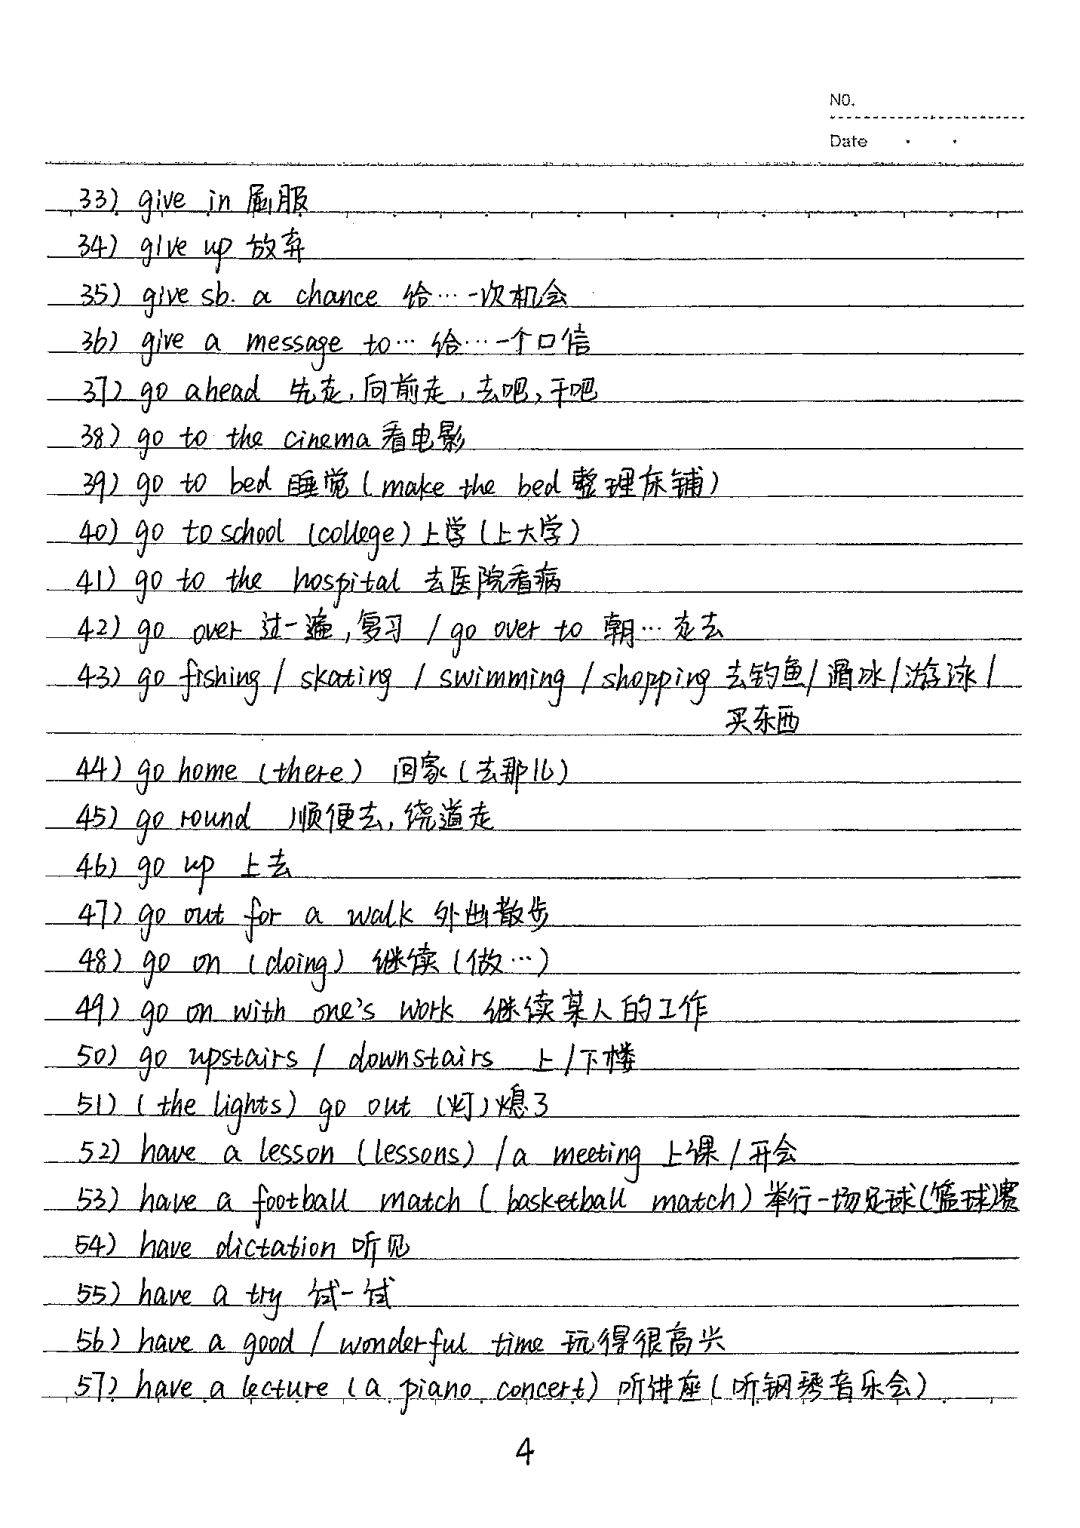 NO.
Date
33) give in 屈服
34) give up 放弃
35) give sb. a chance 给…一次机会
36) give a message to… 给…一个口信
37) go ahead 先走,向前走,去吧,干吧
38) go to the cinema 看电影
39) go to bed 睡觉(make the bed 整理床铺)
40) go to school (college) 上学(上大学)
41) go to the hospital 去医院看病
42) go over 过一遍,复习 / go over to 朝…走去
43) go fishing / skating / swimming / shopping 去钓鱼/滑冰/游泳/
买东西
44) go home (there) 回家(去那儿)
45) go round 顺便去,绕道走
46) go up 上去
47) go out for a walk 外出散步
48) go on (doing) 继续(做…)
49) go on with one's work 继续某人的工作
50) go upstairs / downstairs 上/下楼
51) (the lights) go out (灯)熄了
52) have a lesson (lessons) / a meeting 上课/开会
53) have a football match (basketball match) 举行一场足球(篮球)赛
54) have dictation 听见
55) have a try 试一试
56) have a good / wonderful time 玩得很高兴
57) have a lecture (a piano concert) 听讲座(听钢琴音乐会)
4